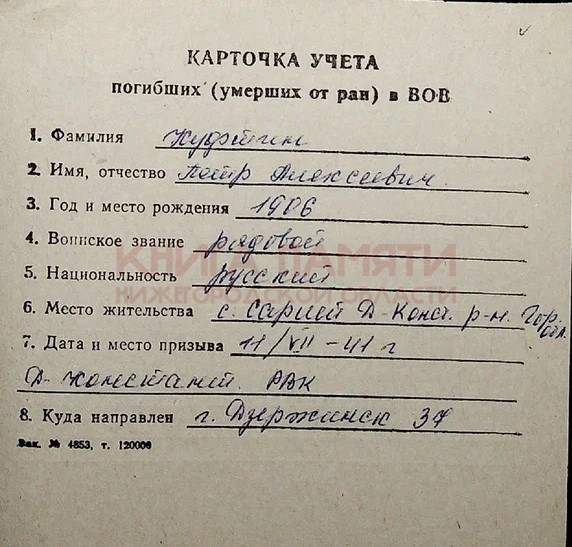 КАРТОЧКА УЧЕТА
погибших (умерших от ран) в ВОВ
1. Фамилия Куфтин
2. Имя, отчество Петр Алексеевич
3. Год и место рождения 1906
4. Воинское звание рядовой
КНИГА ПАМЯТИ
5. Национальность русский
НИЖЕГОРОДСКОЙ ОБЛАСТИ
6. Место жительства с. Сарлей Д-Конст. р-н. Гор. обл.
7. Дата и место призыва 11/VII-41 г
Д- РВК
8. Куда направлен г. Дзержинск 37
Зак. № 4853, т. 120000